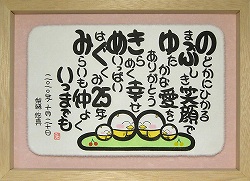 のどかにひかる
まぶしき笑顔で
ゆたかな愛を
ありがとう
きらめく幸せ
めいっぱい
はぐくみ25年
みらいも仲よく
いつまでも
二〇一〇年十月二十日